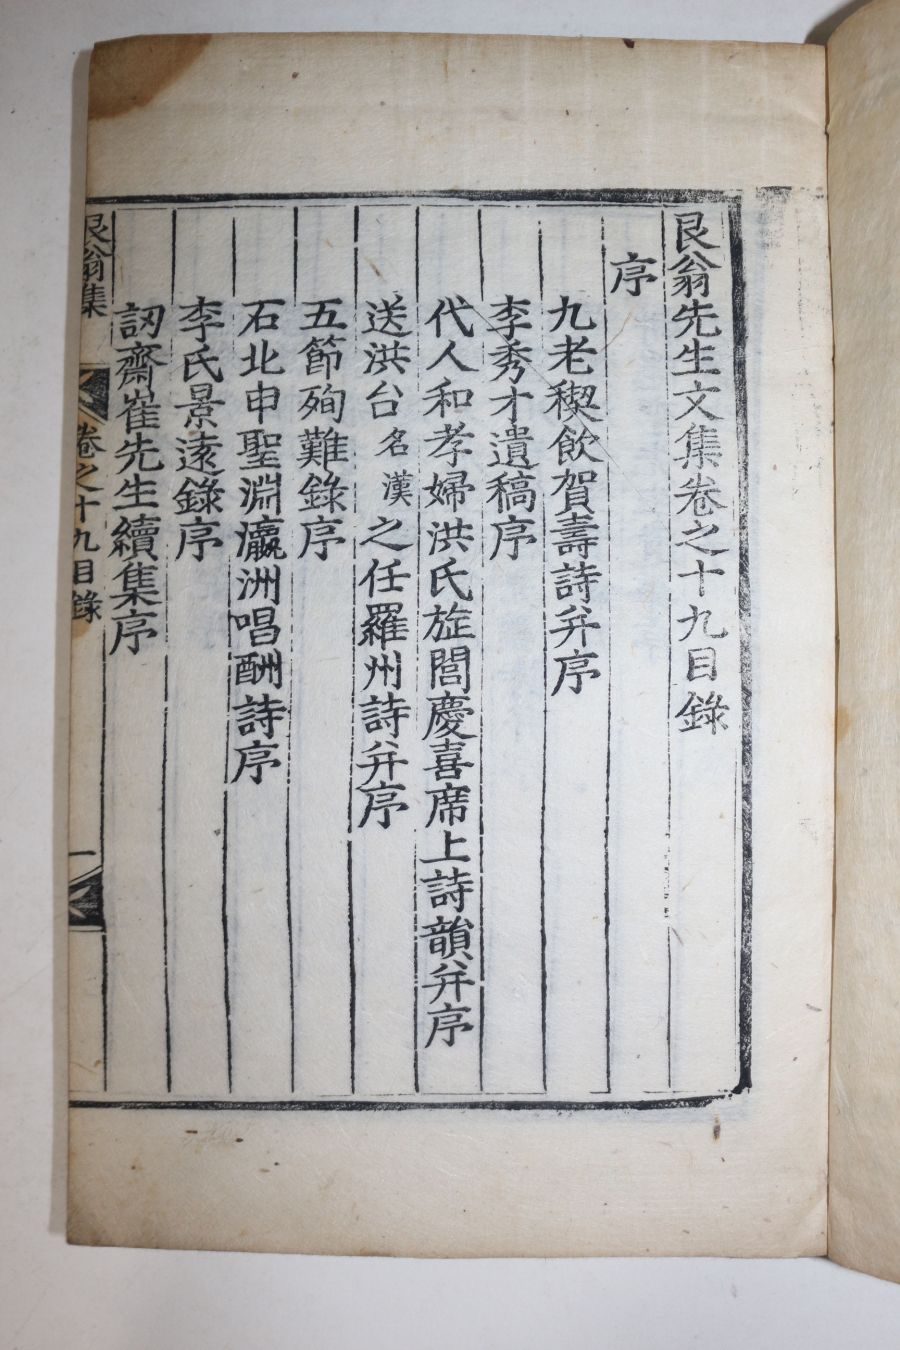 艮翁先生文集卷之十九目錄
序
九老稧飮賀壽詩幷序
李秀才遺稿序
代人和孝婦洪氏旌閭慶喜席上詩韻幷序
送洪台名漢之任羅州詩幷序
五節殉難錄序
石北申聖淵瀛洲唱酬詩序
李氏景遠錄序
訒齋崔先生續集序
艮翁集 卷之十九目錄 一